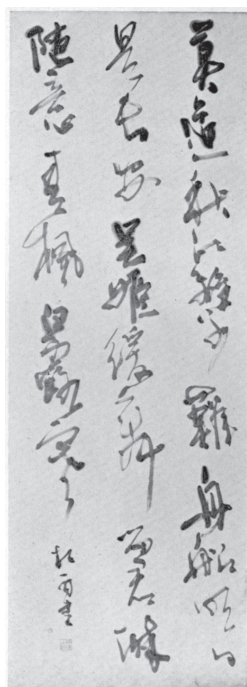 莫道秋江離別難舟船明日
是長安吳姬緩舞留君醉
隨意青楓白露寒
書